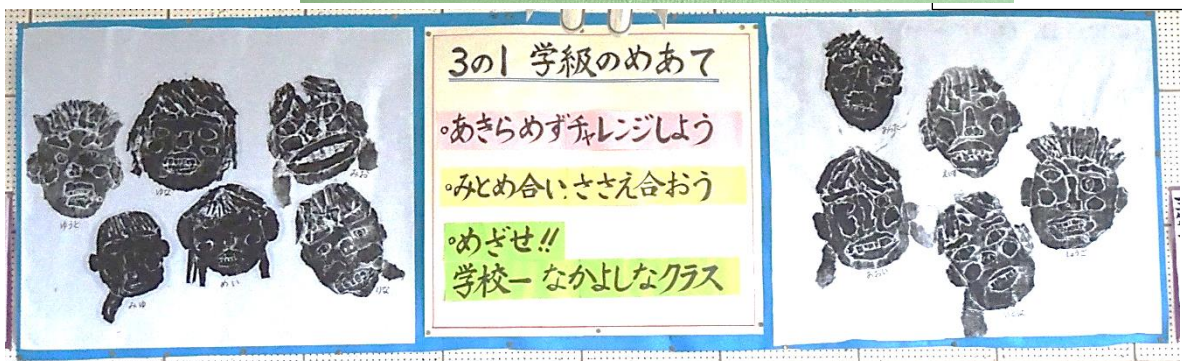 3の1 学級のめあて
。あきらめずチャレンジしよう
。みとめ合い、ささえ合おう
。めざせ!!
学校一 なかよしなクラス
ゆうと
ゆな
みお
みゆ
めい
りな
あおい
しょうご